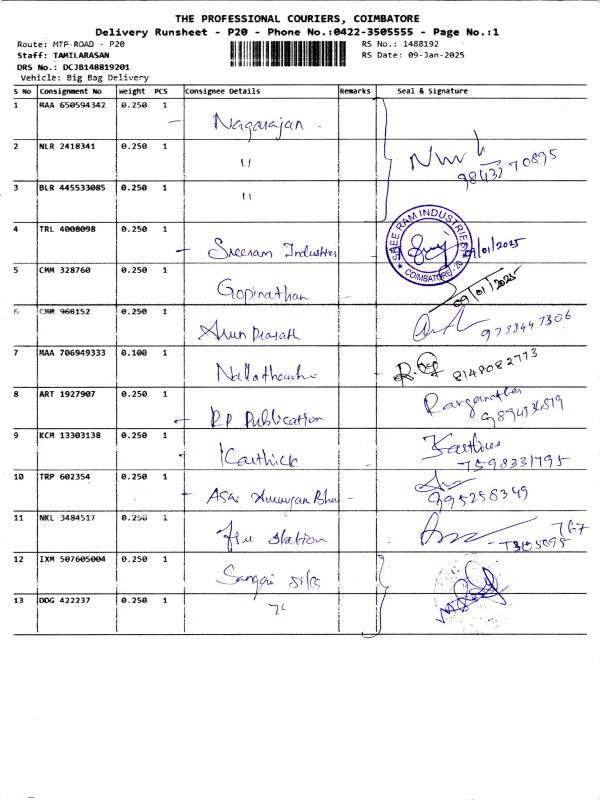 THE PROFESSIONAL COURIERS, COIMBATORE
Delivery Runsheet - P20 - Phone No.:0422-3505555 - Page No.:1
Route: MTP-ROAD - P20 RS No.: 1488192
Staff: TAMILARASAN RS Date: 09-Jan-2025
DRS No.: DCJB148819201
Vehicle: Big Bag Delivery
S No Consignment No Weight PCS Consignee Details Remarks Seal & Signature
1 MAA 650594342 0.250 1 Nagarajan
2 NLR 2418341 0.250 1 "
3 BLR 445533085 0.250 1 "
4 TRL 4008098 0.250 1 Sreeram Industries SREE RAM INDUSTRIES COIMBATORE 09/01/2025
5 CMM 328760 0.250 1 Gopinathan 09/01/2025
6 CMR 966152 0.250 1 Arun Prasath
7 MAA 706949333 0.100 1 8148082773
8 ART 1927907 0.250 1 RP Publication
9 KCM 13303138 0.250 1 Karthick 7598331795
10 TRP 602354 0.250 1 995258349
11 NKL 3484517 0.250 1 Fire station
12 IXM 507605004 0.250 1
13 ODG 422237 0.250 1